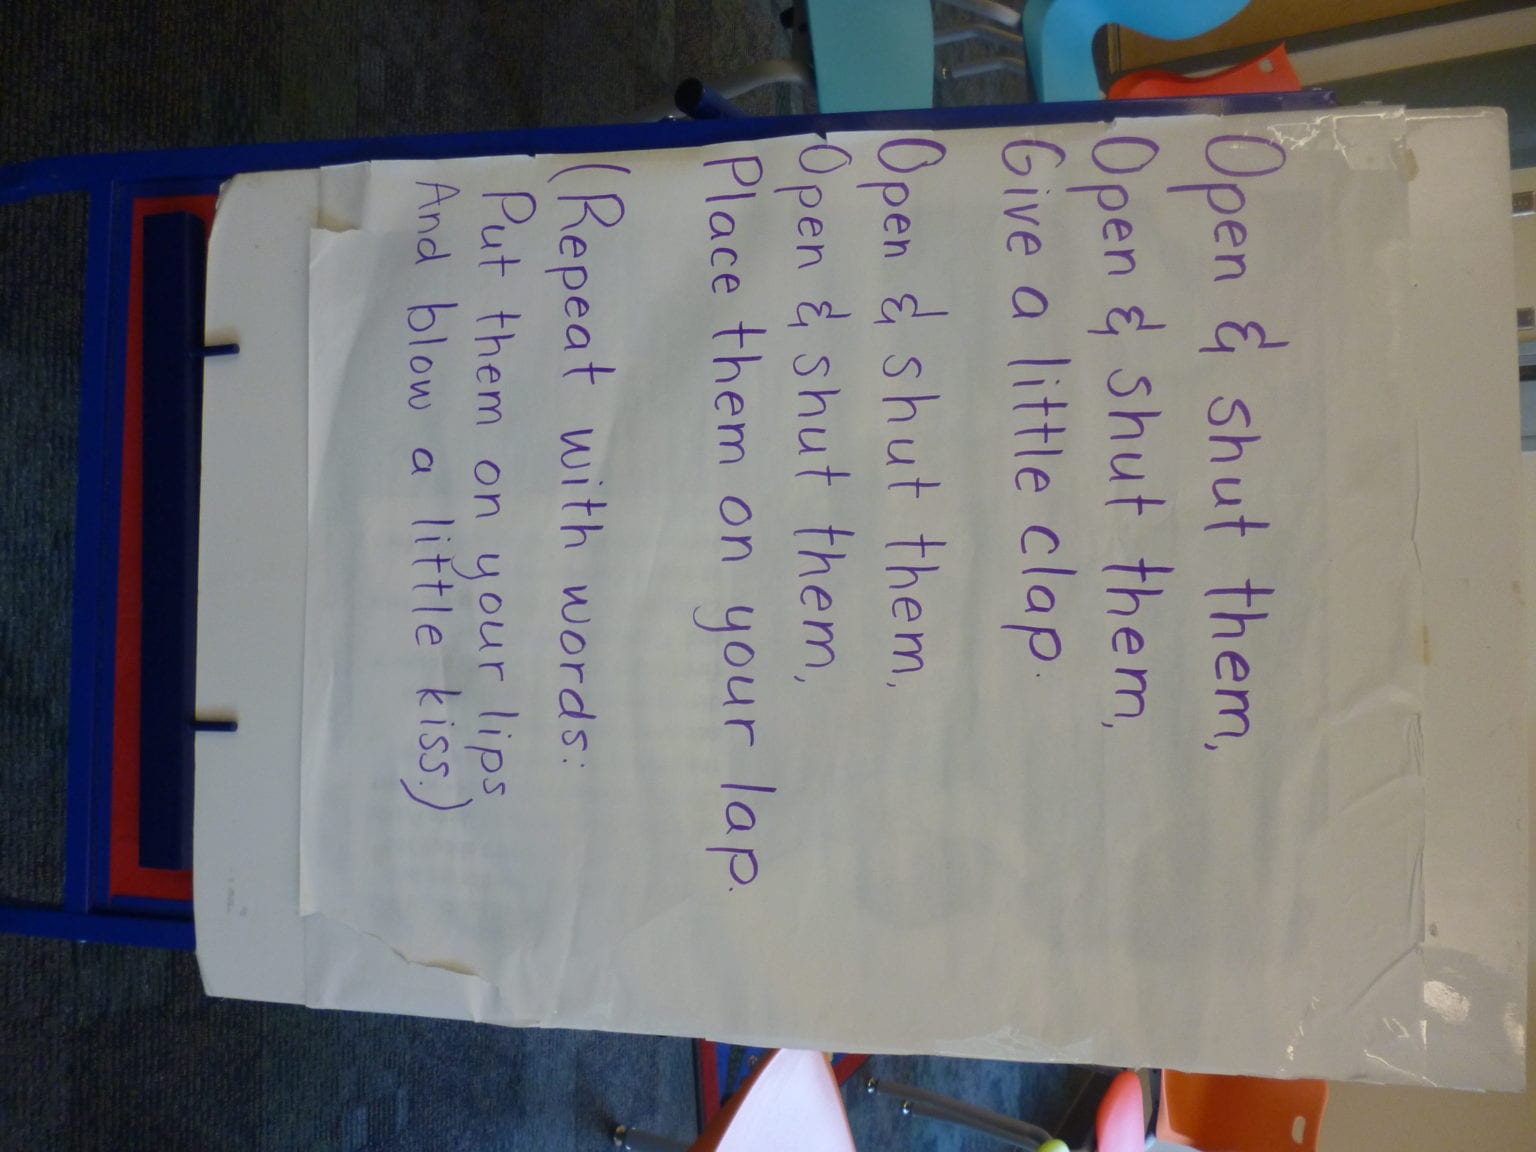 Open & shut them,
Open & shut them,
Give a little clap.
Open & shut them,
Open & shut them,
Place them on your lap.
(Repeat with words:
Put them on your lips
And blow a little kiss.)